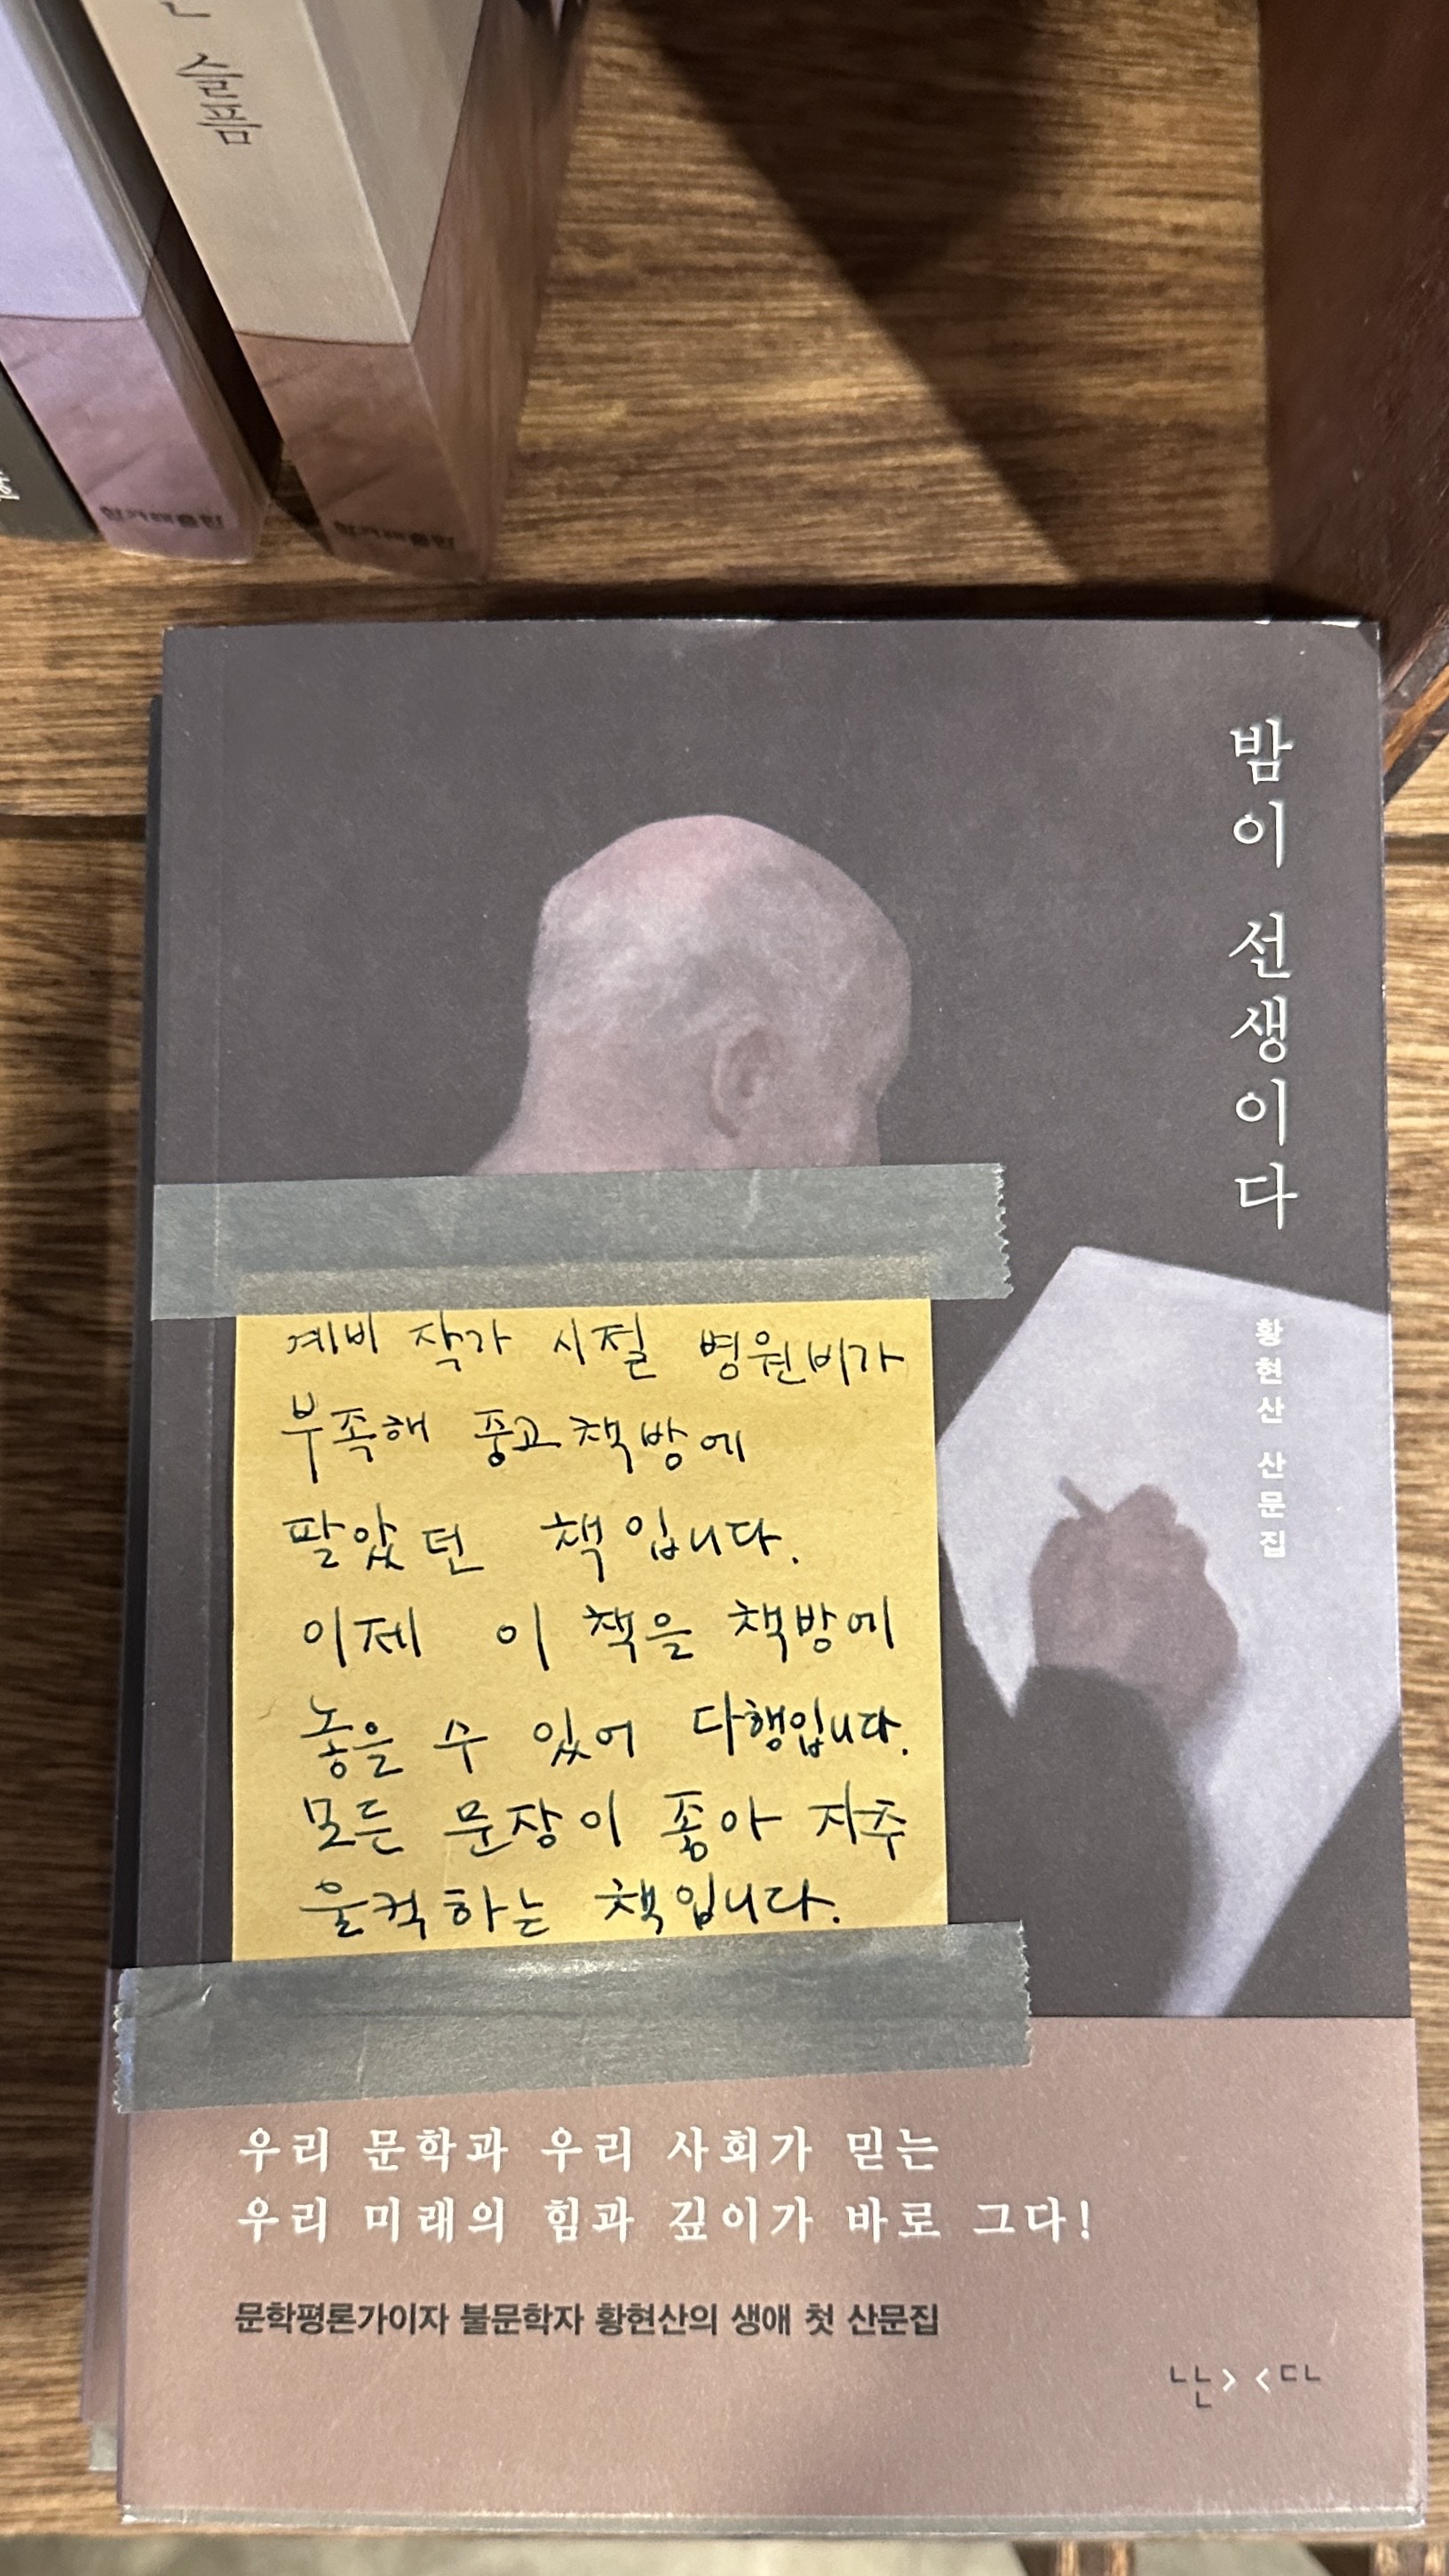 슬픔
밤이 선생이다
황현산 산문집
예비 작가 시절 병원비가
부족해 중고책방에
팔았던 책입니다.
이제 이 책을 책방에
놓을 수 있어 다행입니다.
모든 문장이 좋아 자주
울컥하는 책입니다.
우리 문학과 우리 사회가 믿는
우리 미래의 힘과 깊이가 바로 그다!
문학평론가이자 불문학자 황현산의 생애 첫 산문집